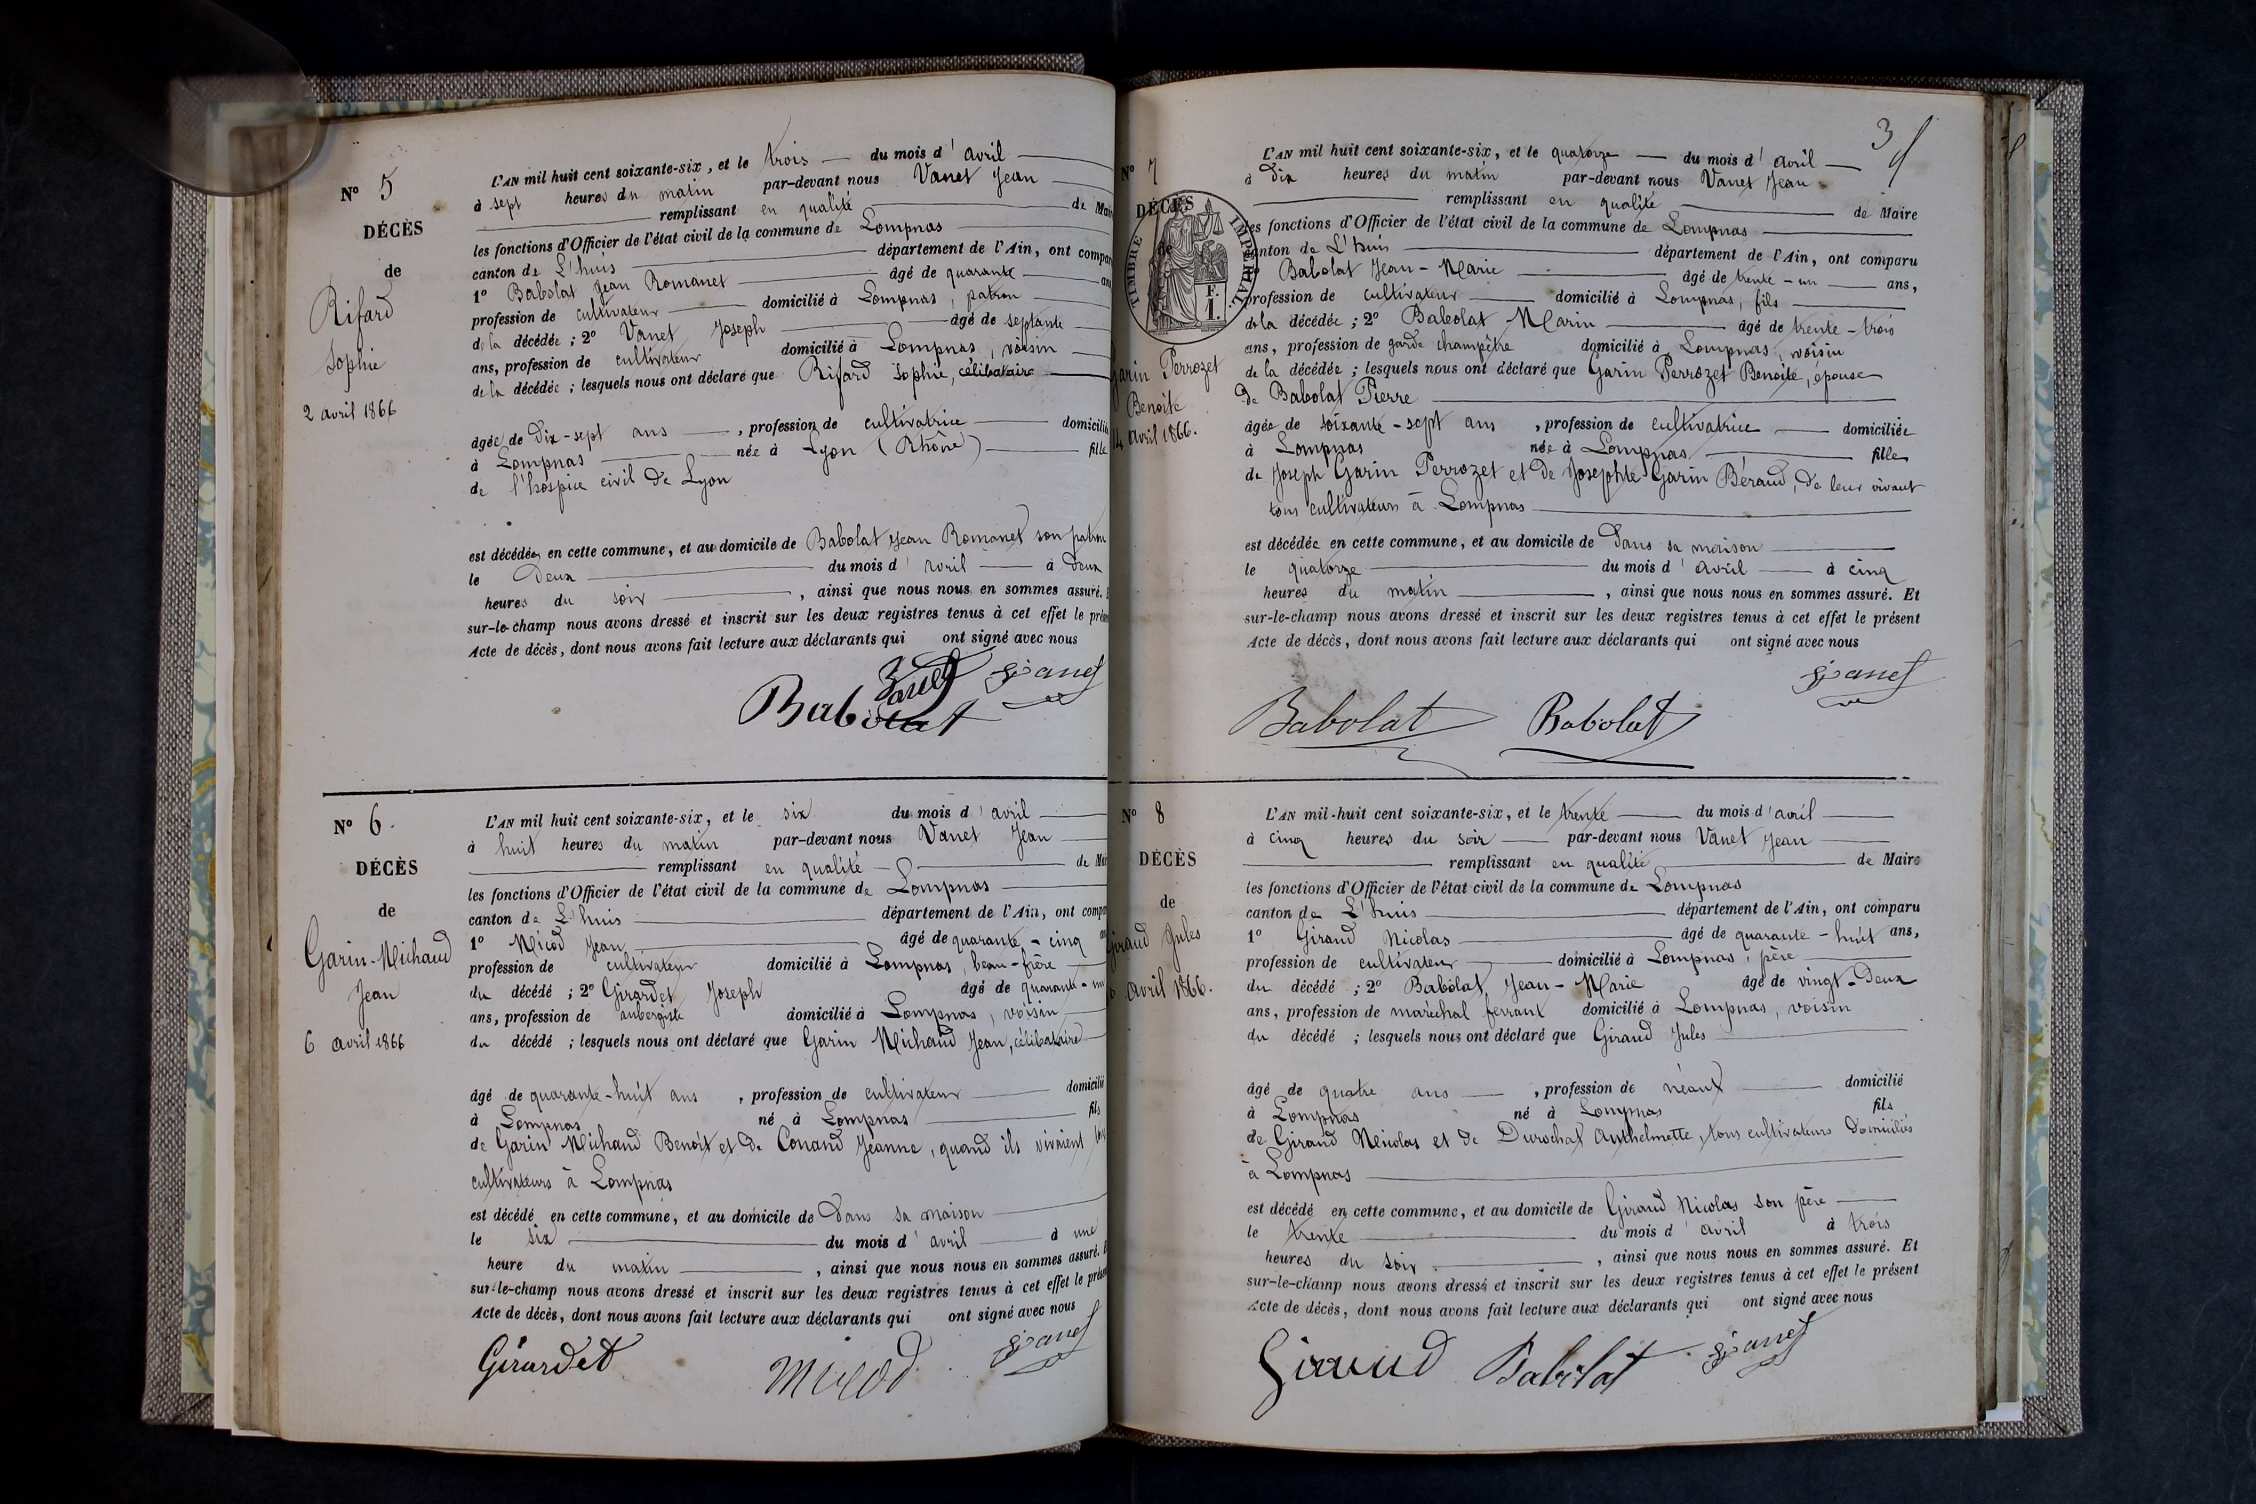 N° 5
DÉCÈS
de
Rifard
Sophie
2 avril 1866
L'AN mil huit cent soixante-six, et le trois du mois d'avril
à sept heures du matin par-devant nous Vanet Jean
remplissant en qualité de Mai
les fonctions d'Officier de l'état civil de la commune de Lompnas
canton de L'huis département de l'Ain, ont compar
1° Babolat Jean Romanet âgé de quarante ans
profession de cultivateur domicilié à Lompnas, patron
de la décédée ; 2° Vanet Joseph âgé de septante
ans, profession de cultivateur domicilié à Lompnas, voisin
de la décédée ; lesquels nous ont déclaré que Rifard Sophie, célibataire
âgée de dix-sept ans, profession de cultivatrice domicilié
à Lompnas née à Lyon (Rhône) fille
de l'hospice civil de Lyon
est décédée en cette commune, et au domicile de Babolat Jean Romanet son patron
le deux du mois d'avril à deux
heures du soir, ainsi que nous nous en sommes assuré. E
sur-le-champ nous avons dressé et inscrit sur les deux registres tenus à cet effet le prése
Acte de décès, dont nous avons fait lecture aux déclarants qui ont signé avec nous
Babolat Vanet Vanet
N° 6.
DÉCÈS
de
Garin-Michaud
Jean
6 avril 1866
L'AN mil huit cent soixante-six, et le six du mois d'avril
à huit heures du matin par-devant nous Vanet Jean
remplissant en qualité de Mai
les fonctions d'Officier de l'état civil de la commune de Lompnas
canton de L'huis département de l'Ain, ont compa
1° Micod Jean âgé de quarante-cinq an
profession de cultivateur domicilié à Lompnas, beau-frère
du décédé ; 2° Girardet Joseph âgé de quarante-un
ans, profession de aubergiste domicilié à Lompnas, voisin
du décédé ; lesquels nous ont déclaré que Garin Michaud Jean, célibataire
âgé de quarante-huit ans, profession de cultivateur domicilié
à Lompnas né à Lompnas fils
de Garin Michaud Benoit et de Conand Jeanne, quand ils vivaient tous
cultivateurs à Lompnas
est décédé en cette commune, et au domicile de dans sa maison
le six du mois d'avril à une
heure du matin, ainsi que nous nous en sommes assuré. E
sur-le-champ nous avons dressé et inscrit sur les deux registres tenus à cet effet le prése
Acte de décès, dont nous avons fait lecture aux déclarants qui ont signé avec nous
Girardet Micod Vanet
3
N° 7
DÉCÈS
de
TIMBRE IMPÉRIAL
F.
1.
Garin Perrozet
Benoite
14 avril 1866.
L'AN mil huit cent soixante-six, et le quatorze du mois d'avril
à dix heures du matin par-devant nous Vanet Jean
remplissant en qualité de Maire
les fonctions d'Officier de l'état civil de la commune de Lompnas
canton de L'huis département de l'Ain, ont comparu
Babolat Jean-Marie âgé de trente-un ans,
profession de cultivateur domicilié à Lompnas, fils
de la décédée ; 2° Babolat Marin âgé de trente-trois
ans, profession de garde champêtre domicilié à Lompnas, voisin
de la décédée ; lesquels nous ont déclaré que Garin Perrozet Benoite, épouse
de Babolat Pierre
âgée de soixante-sept ans, profession de cultivatrice domiciliée
à Lompnas née à Lompnas fille
de Joseph Garin Perrozet et de Josephte Garin Béraud, de leur vivant
tous cultivateurs à Lompnas
est décédée en cette commune, et au domicile de dans sa maison
le quatorze du mois d'avril à cinq
heures du matin, ainsi que nous nous en sommes assuré. Et
sur-le-champ nous avons dressé et inscrit sur les deux registres tenus à cet effet le présent
Acte de décès, dont nous avons fait lecture aux déclarants qui ont signé avec nous
Babolat Babolat Vanet
N° 8
DÉCÈS
de
Giraud Jules
avril 1866.
L'AN mil huit cent soixante-six, et le trente du mois d'avril
à cinq heures du soir par-devant nous Vanet Jean
remplissant en qualité de Maire
les fonctions d'Officier de l'état civil de la commune de Lompnas
canton de L'huis département de l'Ain, ont comparu
1° Giraud Nicolas âgé de quarante-huit ans,
profession de cultivateur domicilié à Lompnas, père
du décédé ; 2° Babolat Jean-Marie âgé de vingt-deux
ans, profession de maréchal ferrant domicilié à Lompnas, voisin
du décédé ; lesquels nous ont déclaré que Giraud Jules
âgé de quatre ans, profession de néant domicilié
à Lompnas né à Lompnas fils
de Giraud Nicolas et de Durochat Anthelmette, tous cultivateurs domiciliés
à Lompnas
est décédé en cette commune, et au domicile de Giraud Nicolas son père
le trente du mois d'avril à trois
heures du soir, ainsi que nous nous en sommes assuré. Et
sur-le-champ nous avons dressé et inscrit sur les deux registres tenus à cet effet le présent
Acte de décès, dont nous avons fait lecture aux déclarants qui ont signé avec nous
Giraud Babolat Vanet